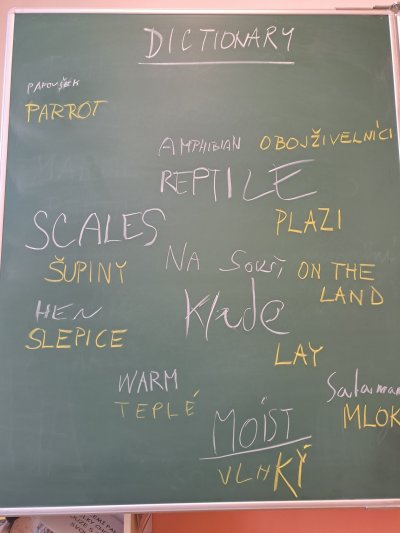 DICTIONARY
PAPOUŠEK
PARROT
AMPHIBIAN OBOJŽIVELNÍCI
REPTILE
PLAZI
SCALES
ŠUPINY
NA Souši ON THE
LAND
HEN
SLEPICE
Klade
LAY
WARM
TEPLÉ
Salaman
MLOK
MOIST
VLHKÝ